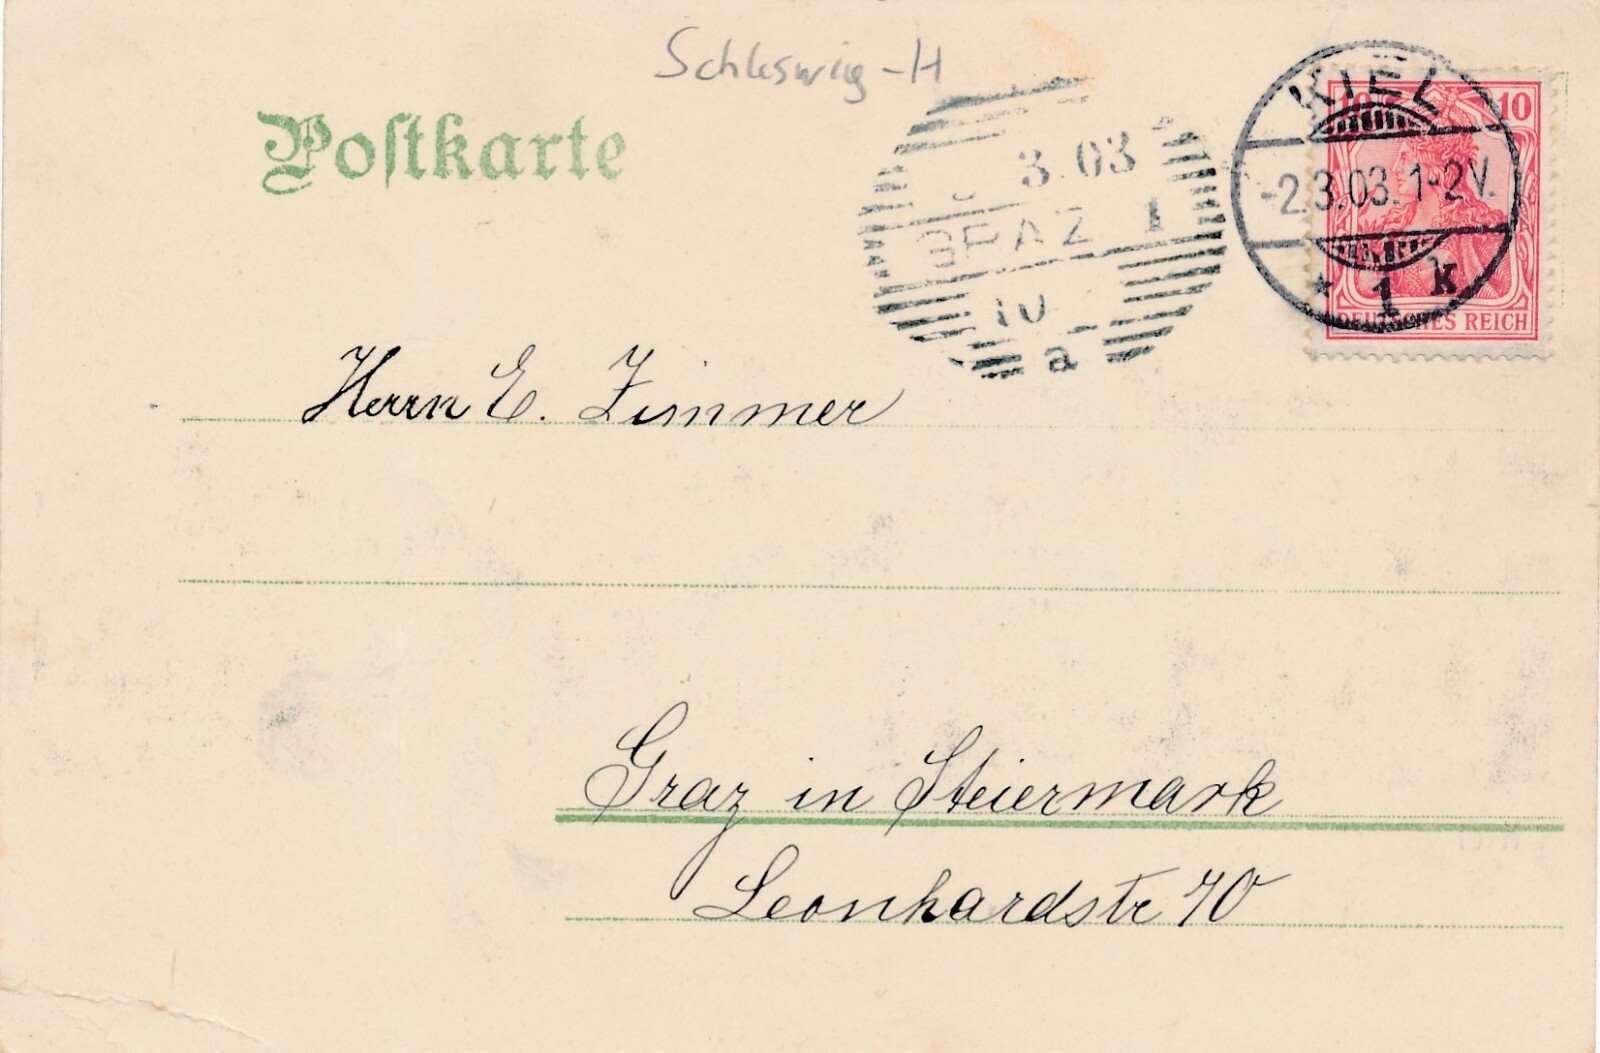 Schleswig-H
Postkarte
3.03
GRAZ 1
10
a
KIEL
-2.3.03.1-2V.
* 1 k
10 10
DEUTSCHES REICH
Herrn E. Zimmer
Graz in Steiermark
Leonhardstr 70